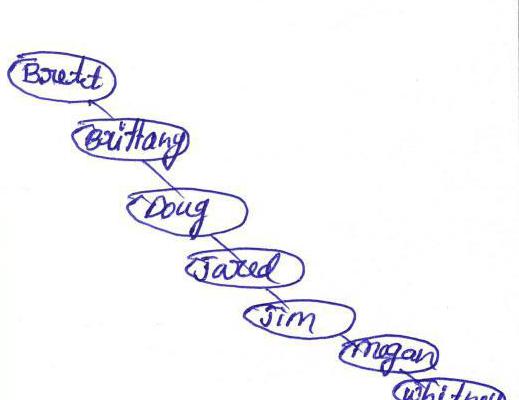 Brett
Brittany
Doug
Jared
Jim
Megan
Whitney